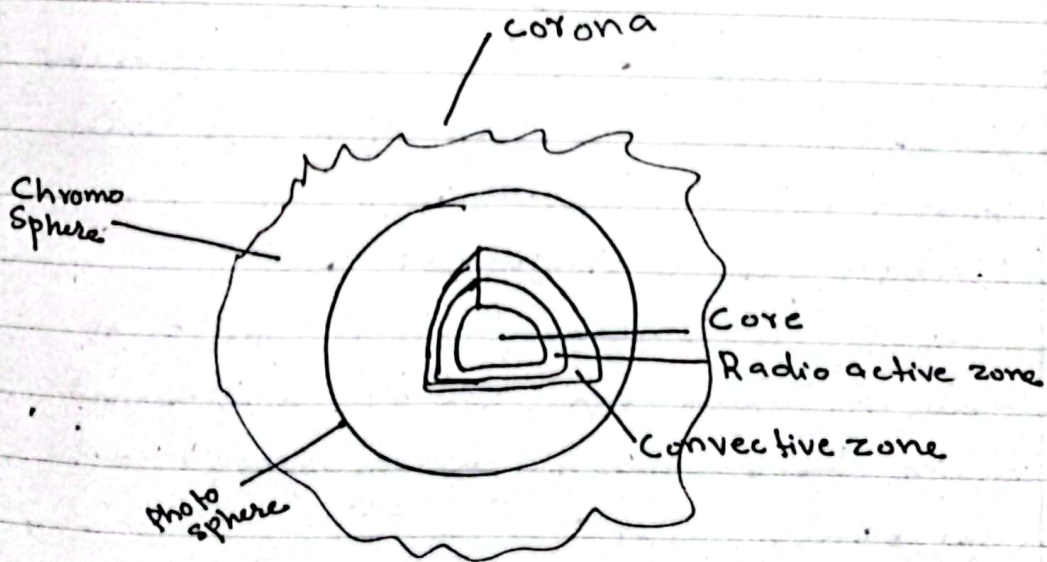 Corona
Chromo
Sphere
Core
Radio active zone
Convective zone
Photo
sphere